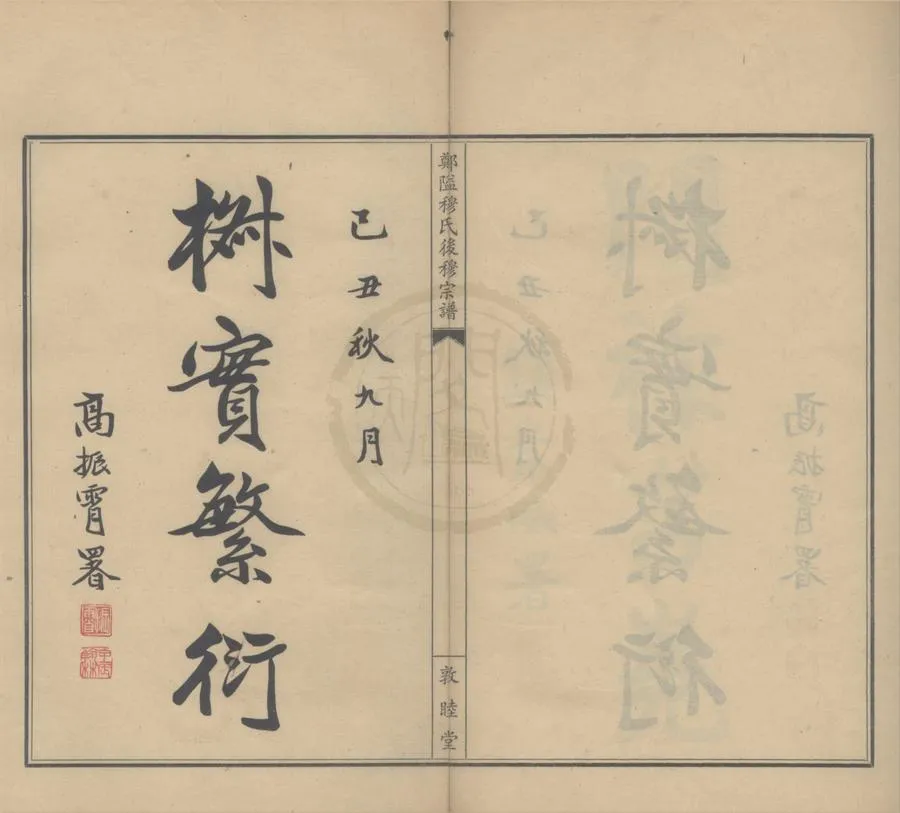 鄭隘穆氏後穆宗譜
敦睦堂
己丑秋九月
椒實繁衍
高振霄署